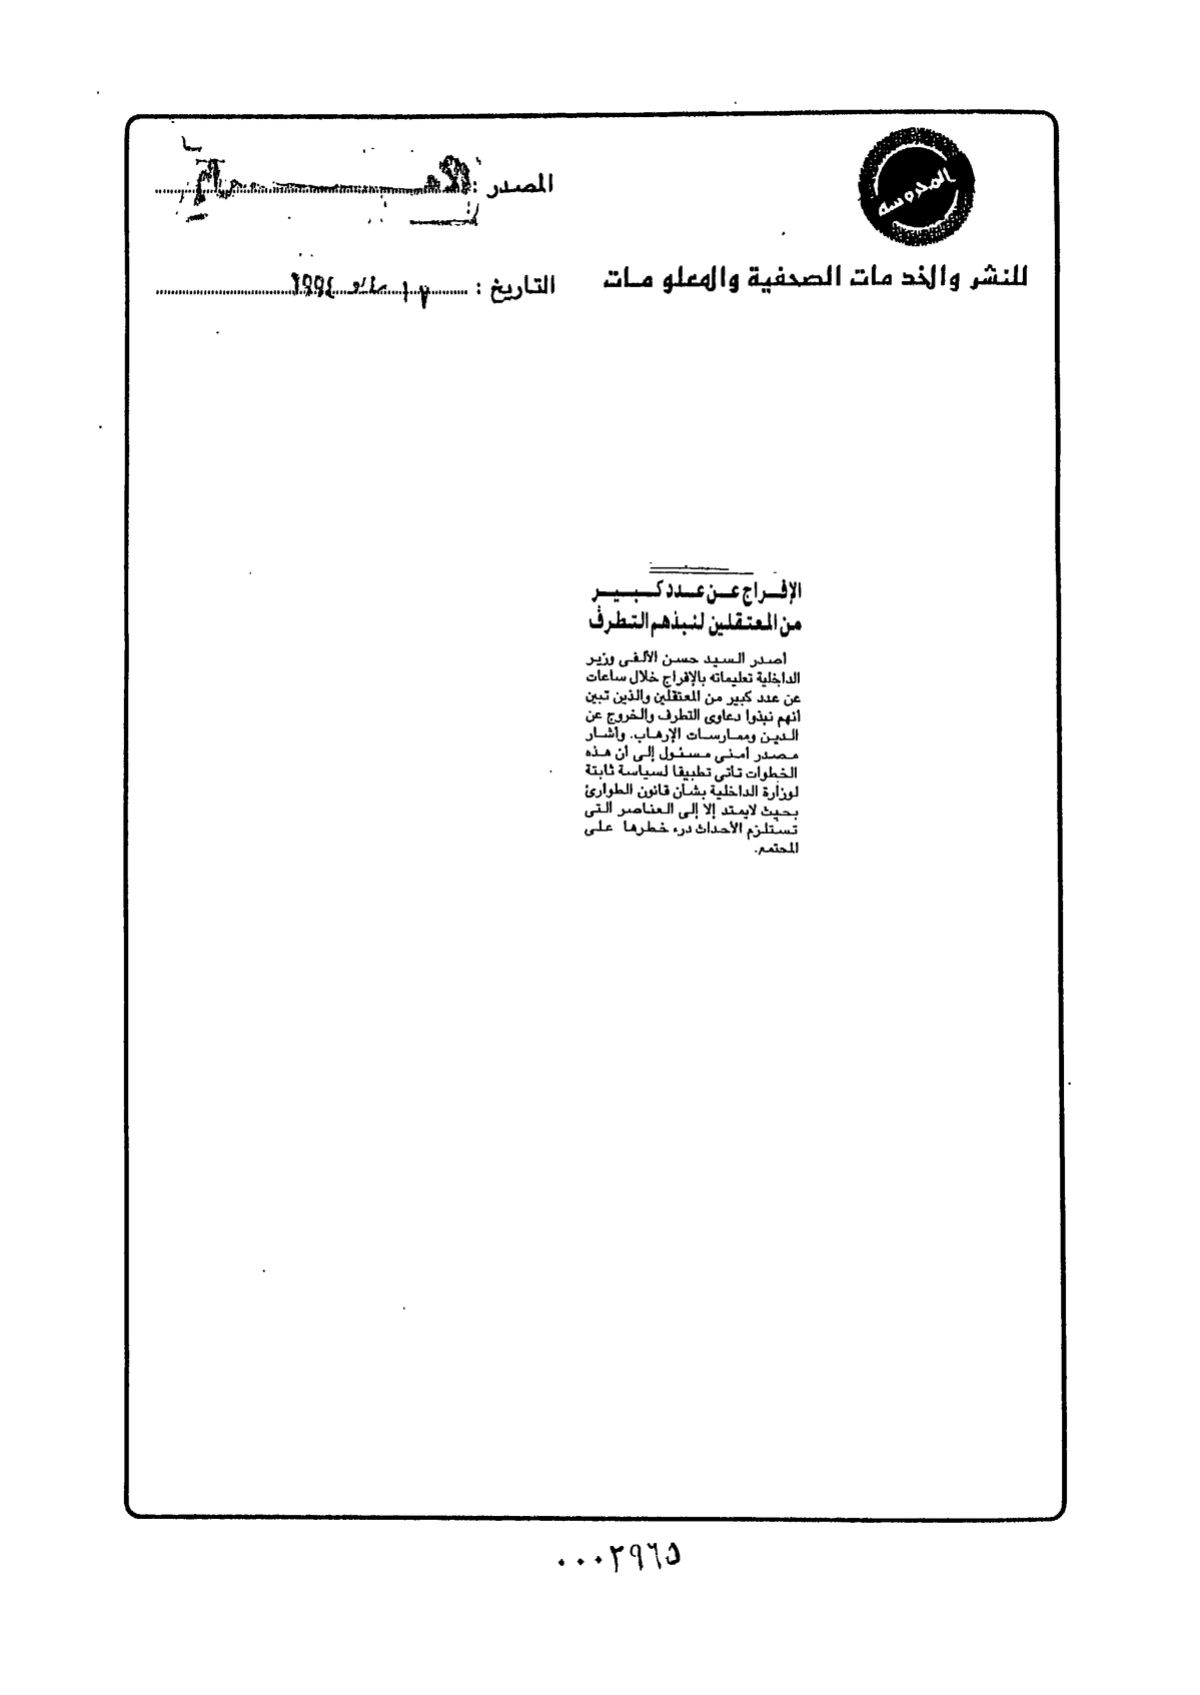 المحروسة
للنشر والخدمات الصحفية والمعلومات
المصدر :
التاريخ :
الإفراج عن عدد كبير
من المعتقلين لنبذهم التطرف
أصدر السيد حسن الألفى وزير
الداخلية تعليماته بالإفراج خلال ساعات
عن عدد كبير من المعتقلين والذين تبين
أنهم نبذوا دعاوى التطرف والخروج عن
الدين وممارسات الإرهاب. وأشار
مصدر أمنى مسئول إلى أن هذه
الخطوات تأتى تطبيقا لسياسة ثابتة
لوزارة الداخلية بشأن قانون الطوارئ
بحيث لايمتد إلا إلى العناصر التى
تستلزم الأحداث درء خطرها على
المجتمع.
٠٠٠٢٩٦٥